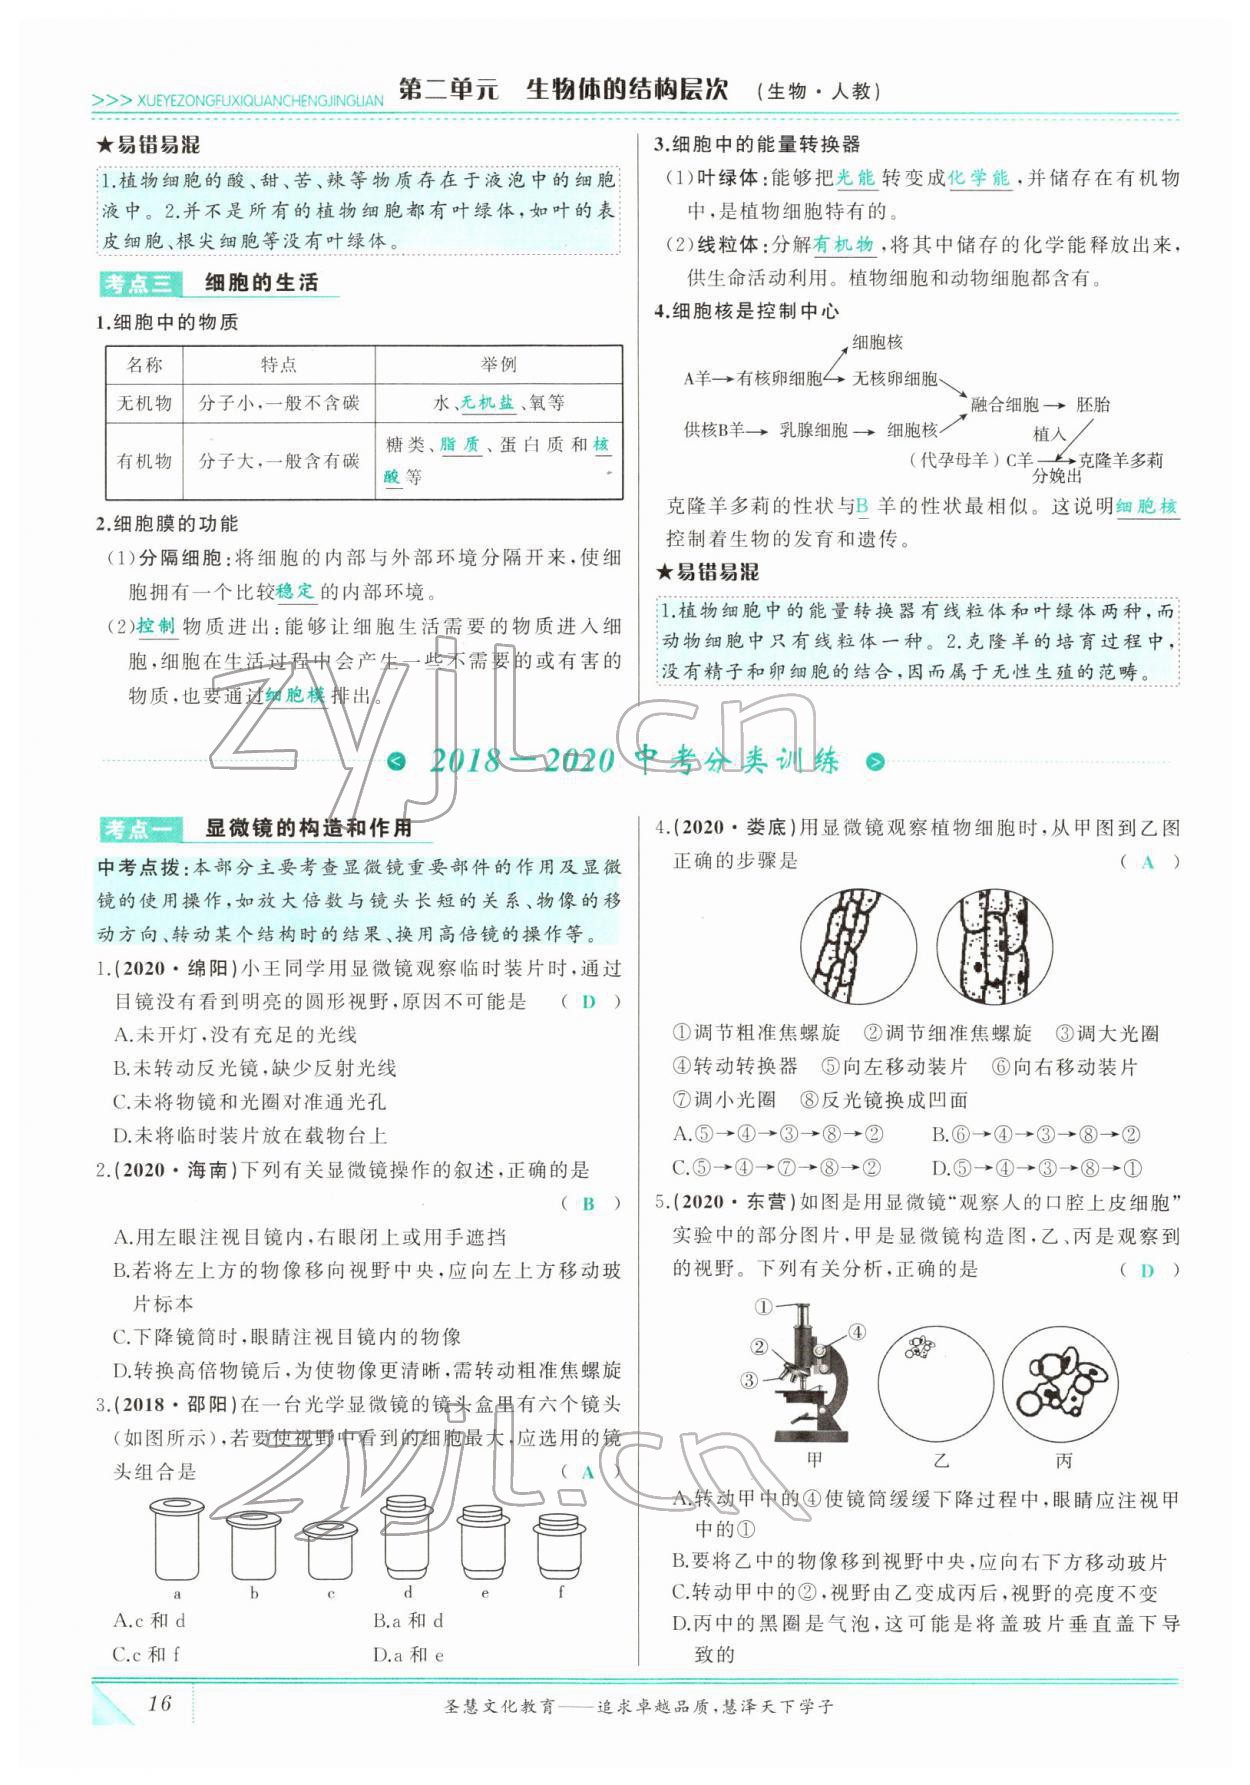 >>> XUEYEZONGFUXIQUANCHENGJINGLIAN 第二单元 生物体的结构层次 (生物·人教)
★易错易混
1.植物细胞的酸、甜、苦、辣等物质存在于液泡中的细胞
液中。2.并不是所有的植物细胞都有叶绿体,如叶的表
皮细胞、根尖细胞等没有叶绿体。
考点三 细胞的生活
1.细胞中的物质
名称 特点 举例
无机物 分子小,一般不含碳 水、无机盐、氧等
有机物 分子大,一般含有碳 糖类、脂质、蛋白质和核
酸等
2.细胞膜的功能
(1)分隔细胞:将细胞的内部与外部环境分隔开来,使细
胞拥有一个比较稳定的内部环境。
(2)控制物质进出:能够让细胞生活需要的物质进入细
胞,细胞在生活过程中会产生一些不需要的或有害的
物质,也要通过细胞模排出。
3.细胞中的能量转换器
(1)叶绿体:能够把光能转变成化学能,并储存在有机物
中,是植物细胞特有的。
(2)线粒体:分解有机物,将其中储存的化学能释放出来,
供生命活动利用。植物细胞和动物细胞都含有。
4.细胞核是控制中心
细胞核
A羊→有核卵细胞→无核卵细胞
融合细胞→胚胎
供核B羊→乳腺细胞→细胞核
植入
(代孕母羊)C羊→克隆羊多莉
分娩出
克隆羊多莉的性状与B羊的性状最相似。这说明细胞核
控制着生物的发育和遗传。
★易错易混
1.植物细胞中的能量转换器有线粒体和叶绿体两种,而
动物细胞中只有线粒体一种。2.克隆羊的培育过程中,
没有精子和卵细胞的结合,因而属于无性生殖的范畴。
< 2018—2020中考分类训练 >
考点一 显微镜的构造和作用
中考点拨:本部分主要考查显微镜重要部件的作用及显微
镜的使用操作,如放大倍数与镜头长短的关系、物像的移
动方向、转动某个结构时的结果、换用高倍镜的操作等。
1.(2020·绵阳)小王同学用显微镜观察临时装片时,通过
目镜没有看到明亮的圆形视野,原因不可能是 ( D )
A.未开灯,没有充足的光线
B.未转动反光镜,缺少反射光线
C.未将物镜和光圈对准通光孔
D.未将临时装片放在载物台上
2.(2020·海南)下列有关显微镜操作的叙述,正确的是
( B )
A.用左眼注视目镜内,右眼闭上或用手遮挡
B.若将左上方的物像移向视野中央,应向左上方移动玻
片标本
C.下降镜筒时,眼睛注视目镜内的物像
D.转换高倍物镜后,为使物像更清晰,需转动粗准焦螺旋
3.(2018·邵阳)在一台光学显微镜的镜头盒里有六个镜头
(如图所示),若要使视野中看到的细胞最大,应选用的镜
头组合是 ( A )
a b c d e f
A.c 和 d B.a 和 d
C.c 和 f D.a 和 e
4.(2020·娄底)用显微镜观察植物细胞时,从甲图到乙图
正确的步骤是 ( A )
①调节粗准焦螺旋 ②调节细准焦螺旋 ③调大光圈
④转动转换器 ⑤向左移动装片 ⑥向右移动装片
⑦调小光圈 ⑧反光镜换成凹面
A.⑤→④→③→⑧→② B.⑥→④→③→⑧→②
C.⑤→④→⑦→⑧→② D.⑤→④→③→⑧→①
5.(2020·东营)如图是用显微镜“观察人的口腔上皮细胞”
实验中的部分图片,甲是显微镜构造图,乙、丙是观察到
的视野。下列有关分析,正确的是 ( D )
① ② ③ ④
甲 乙 丙
A.转动甲中的④使镜筒缓缓下降过程中,眼睛应注视甲
中的①
B.要将乙中的物像移到视野中央,应向右下方移动玻片
C.转动甲中的②,视野由乙变成丙后,视野的亮度不变
D.丙中的黑圈是气泡,这可能是将盖玻片垂直盖下导
致的
16 圣慧文化教育——追求卓越品质,慧泽天下学子
zyjl.cn
zyjl.cn